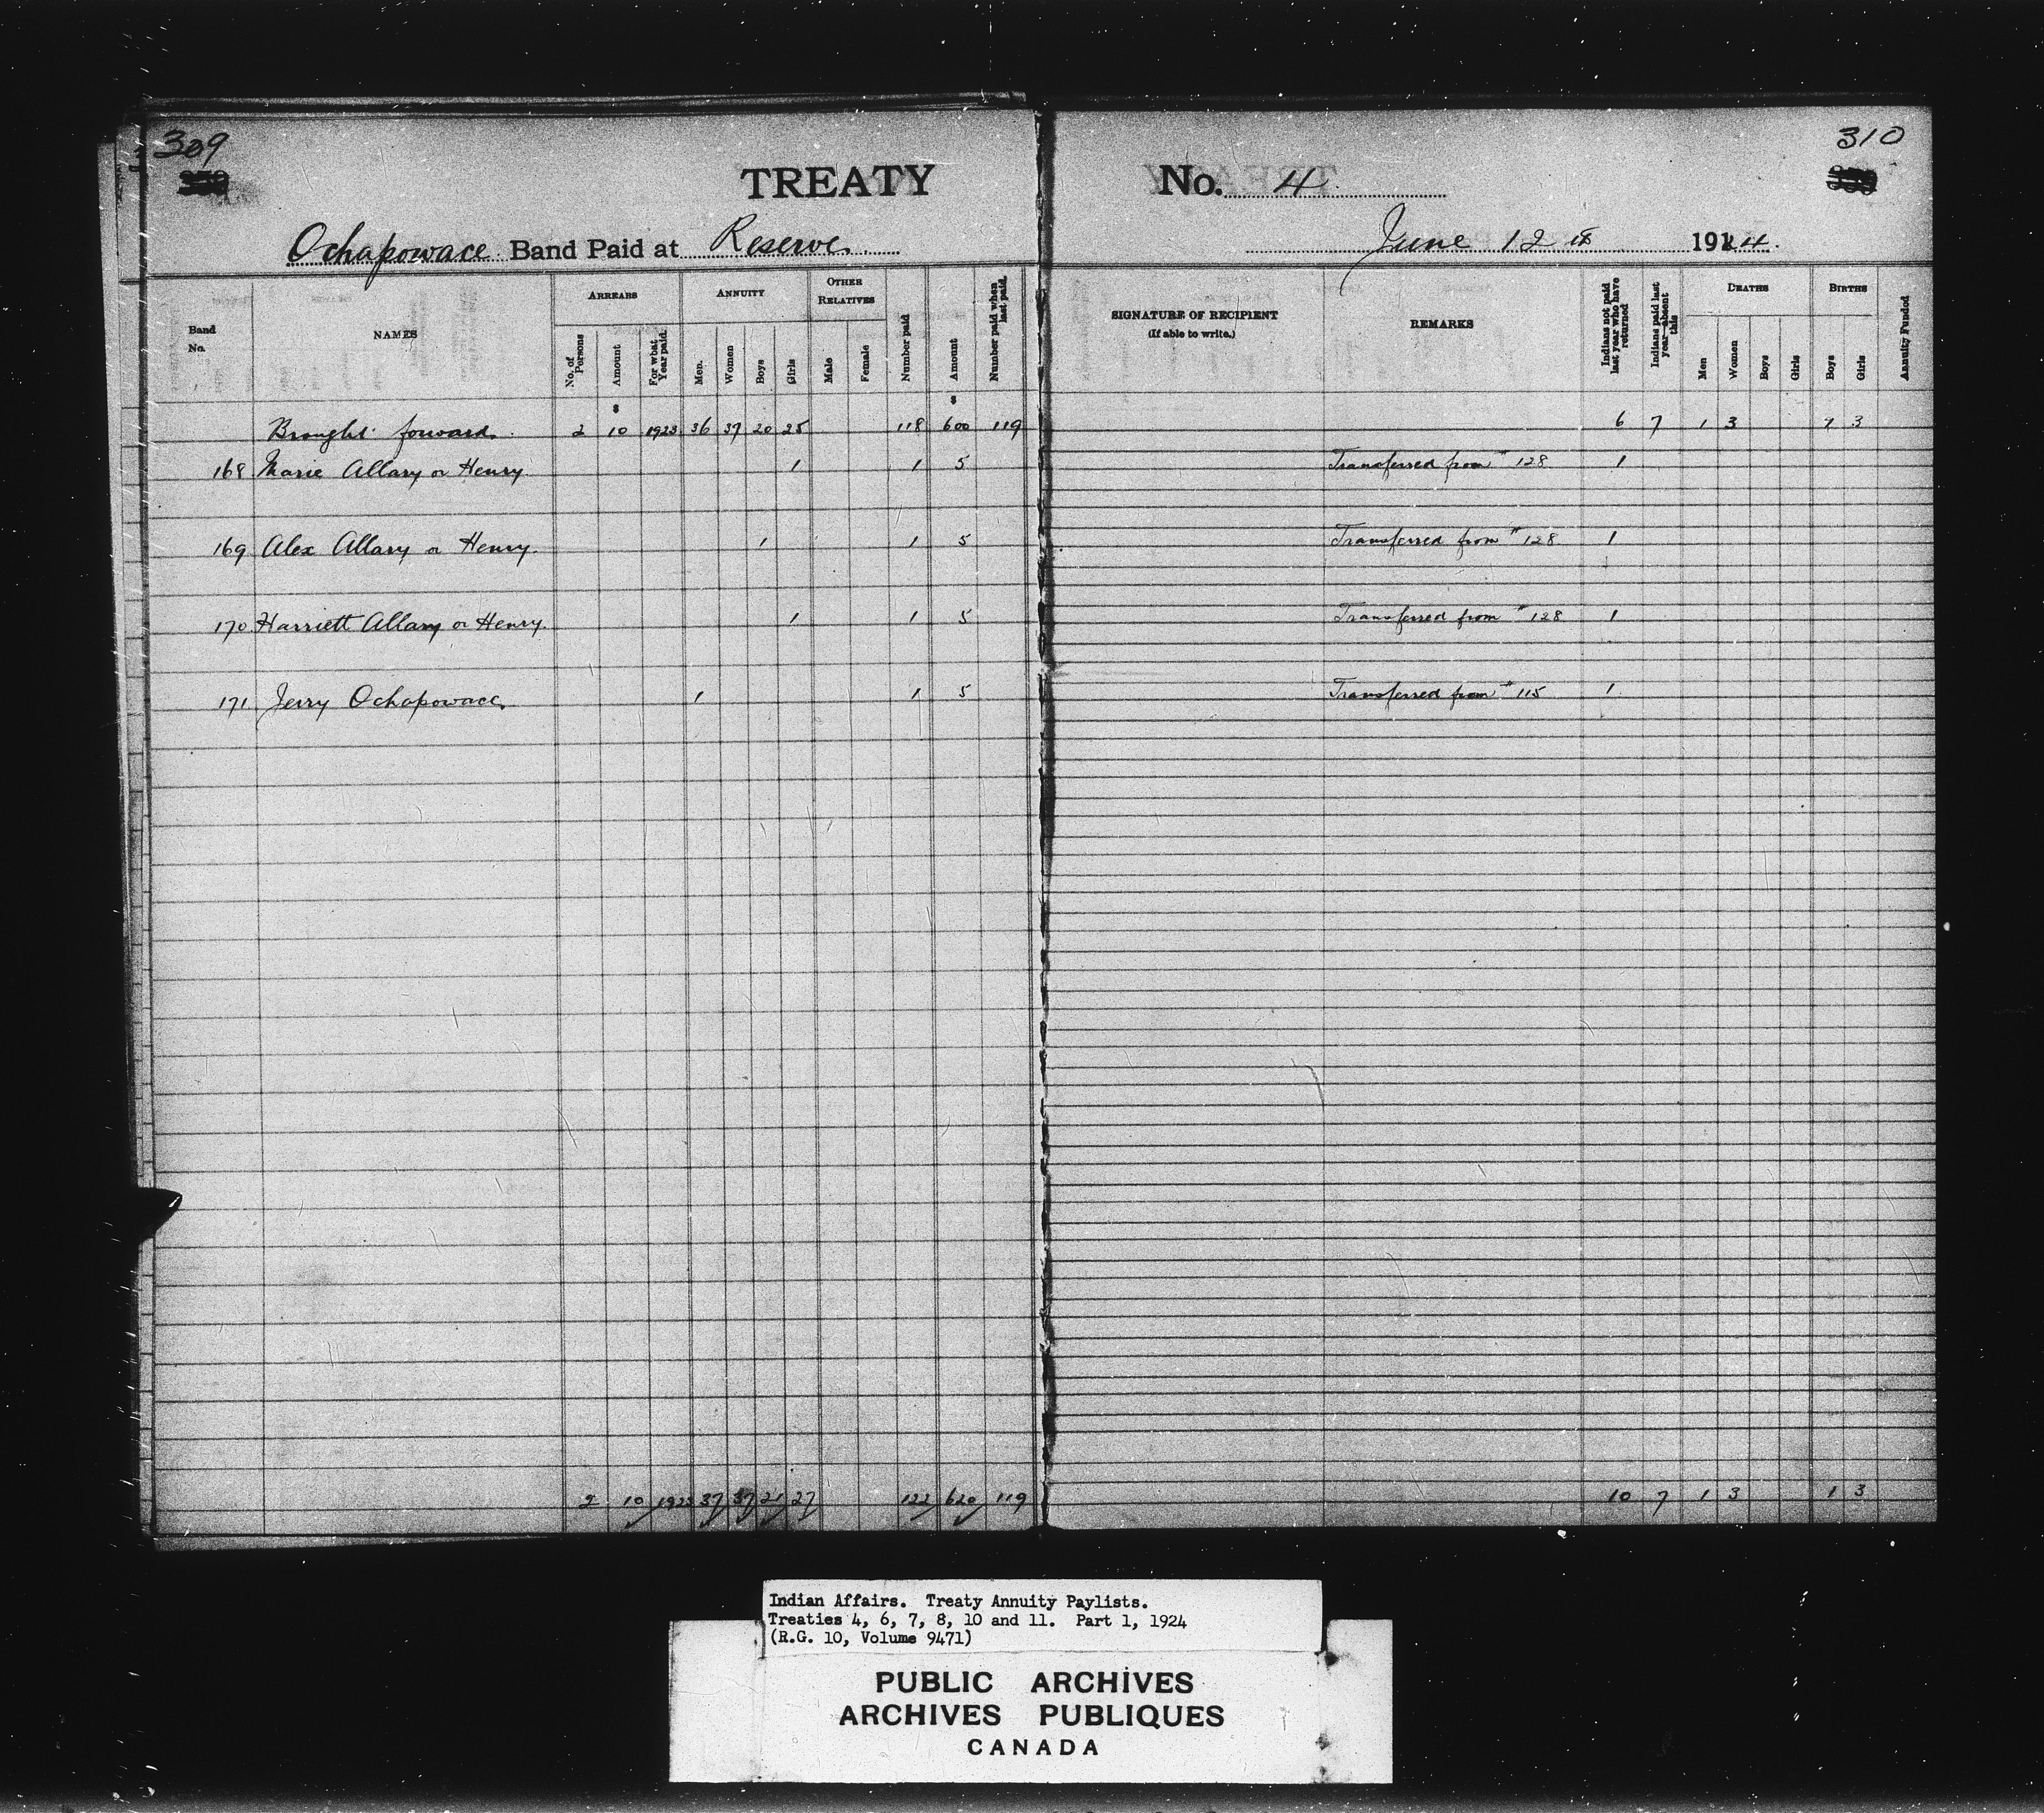 309
310
TREATY No. 4
Ochapowace Band Paid at Reserve June 12th 1924.
Band No.
NAMES
ARREARS
No. of Persons
Amount
For what Year paid.
ANNUITY
Men.
Women
Boys
Girls
OTHER RELATIVES
Male
Female
Number paid
Amount
Number paid when last paid.
SIGNATURE OF RECIPIENT
(If able to write.)
REMARKS
Indians not paid last year who have returned
Indians paid last year—absent this
DEATHS
Men
Women
Boys
Girls
BIRTHS
Boys
Girls
Annuity Funded
$ $
Brought forward. 2 10 1923 36 37 20 25 118 600 119 6 7 1 3 3
168 Marie Allary or Henry 1 1 5 Transferred from # 128 1
169 Alex Allary or Henry. 1 1 5 Transferred from # 128 1
170 Harriett Allary or Henry. 1 1 5 Transferred from # 128 1
171 Jerry Ochapowace. 1 1 5 Transferred from # 115 1
2 10 1923 37 37 21 27 122 620 119 10 7 1 3 1 3
Indian Affairs. Treaty Annuity Paylists.
Treaties 4, 6, 7, 8, 10 and 11. Part 1, 1924
(R.G. 10, Volume 9471)
PUBLIC ARCHIVES
ARCHIVES PUBLIQUES
CANADA